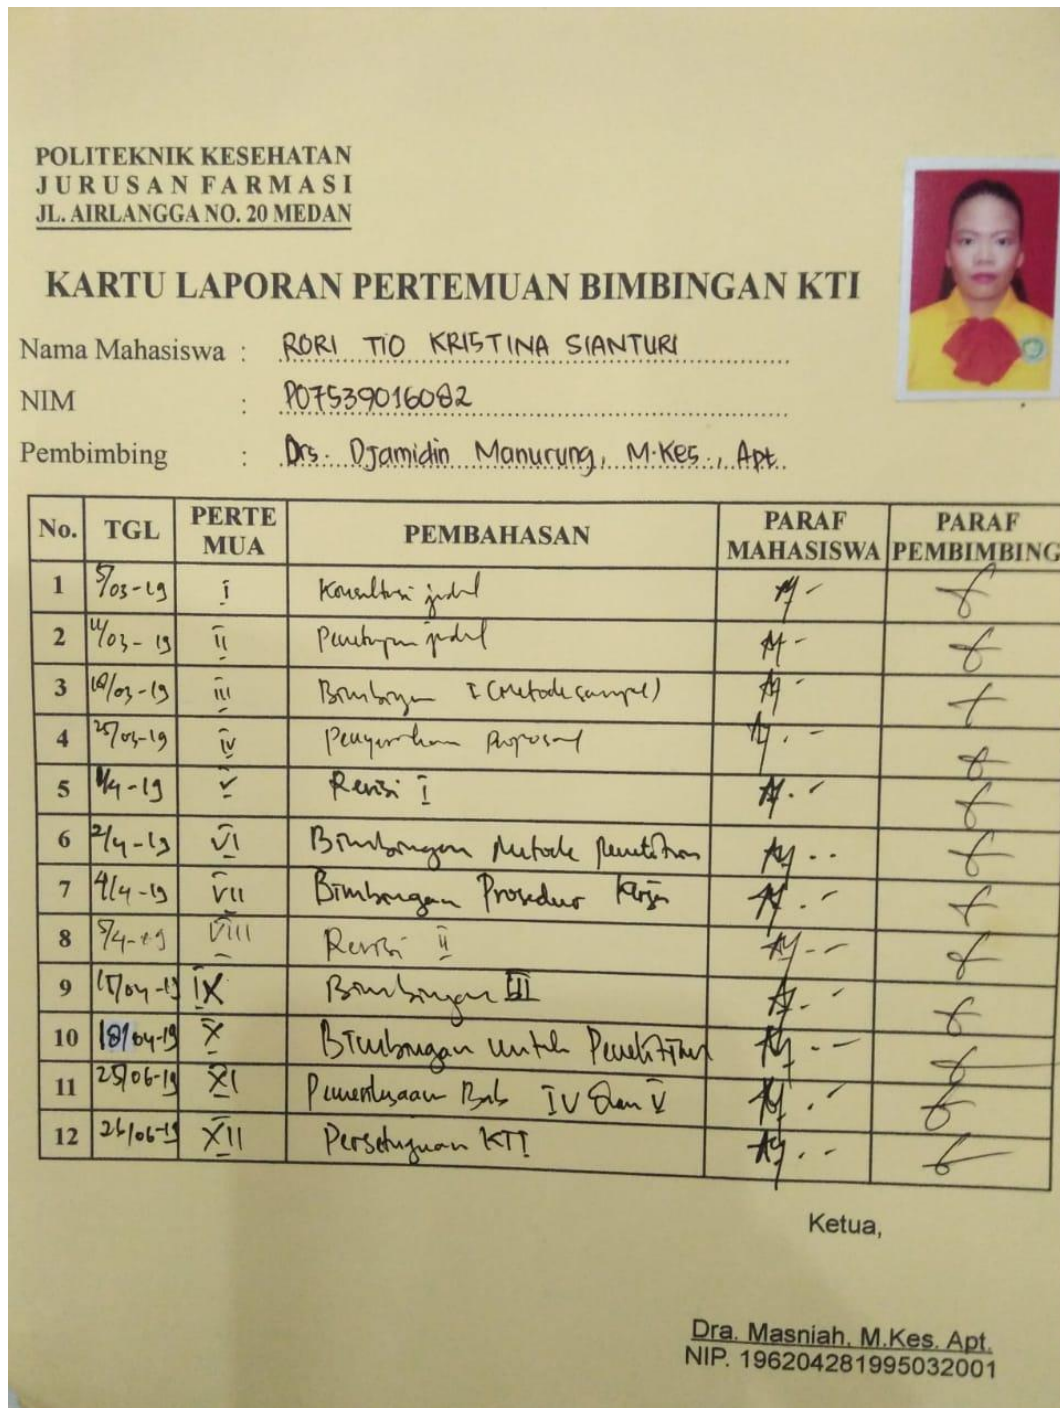 POLITEKNIK KESEHATAN
JURUSAN FARMASI
JL. AIRLANGGA NO. 20 MEDAN
KARTU LAPORAN PERTEMUAN BIMBINGAN KTI
Nama Mahasiswa : RORI TIO KRISTINA SIANTURI
NIM : P07539016082
Pembimbing : Drs. Djamidin Manurung, M.Kes., Apt.
No. TGL PERTE MUA PEMBAHASAN PARAF MAHASISWA PARAF PEMBIMBING
1 5/03-19 I Konsultasi judul
2 11/03-19 II Penetapan judul
3 18/03-19 III Bimbingan I (Metode sampel)
4 25/03-19 IV Proposal
5 1/4-19 V Revisi I
6 2/4-19 VI Bimbingan Metode Penelitian
7 4/4-19 VII Bimbingan Prosedur Kerja
8 5/4-19 VIII Revisi II
9 /04-19 IX Bimbingan III
10 18/04-19 X Bimbingan untuk Penelitian
11 25/06-19 XI Bab IV dan V
12 26/06-19 XII Persetujuan KTI
Ketua,
Dra. Masniah, M.Kes. Apt.
NIP. 196204281995032001